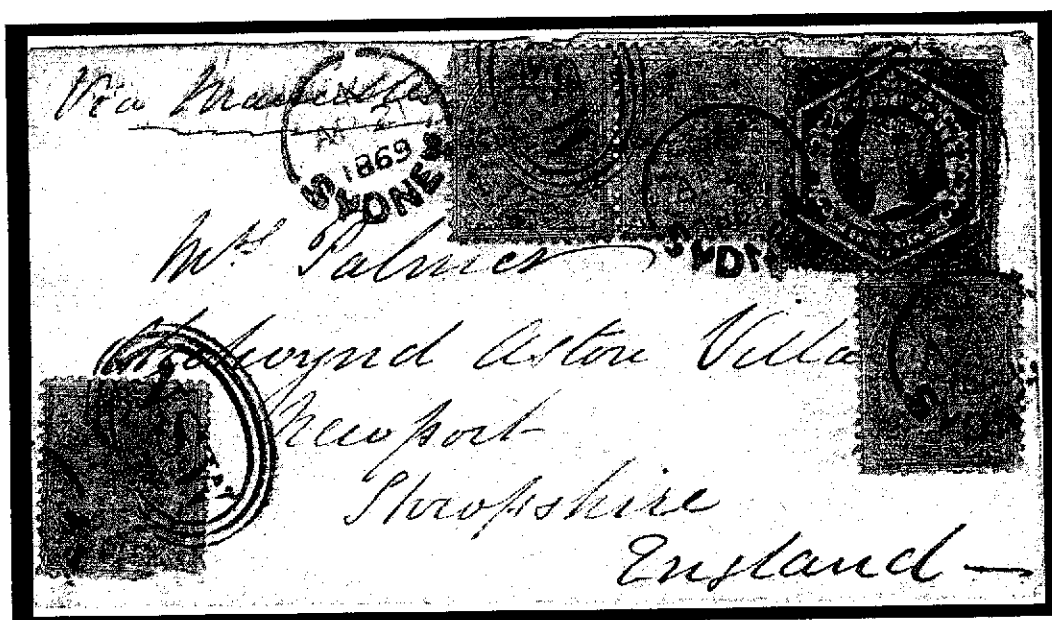 Via Marseilles
AP 21
1869
SYDNEY
Mrs Palmer
SYDN
Chetwynd Aston Villa
Newport
Shropshire
England